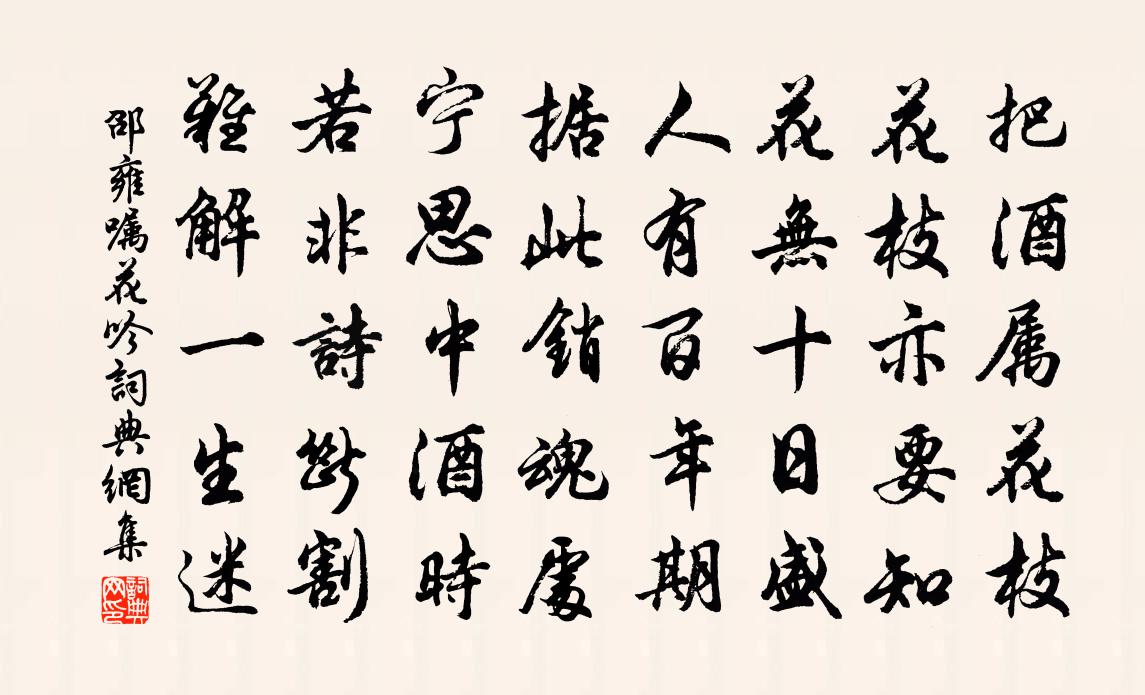 把酒属花枝
花枝亦要知
花無十日盛
人有百年期
据此銷魂處
宁思中酒時
若非詩斷割
難解一生迷
邵雍嘱花吟詞典網集
詞典网印